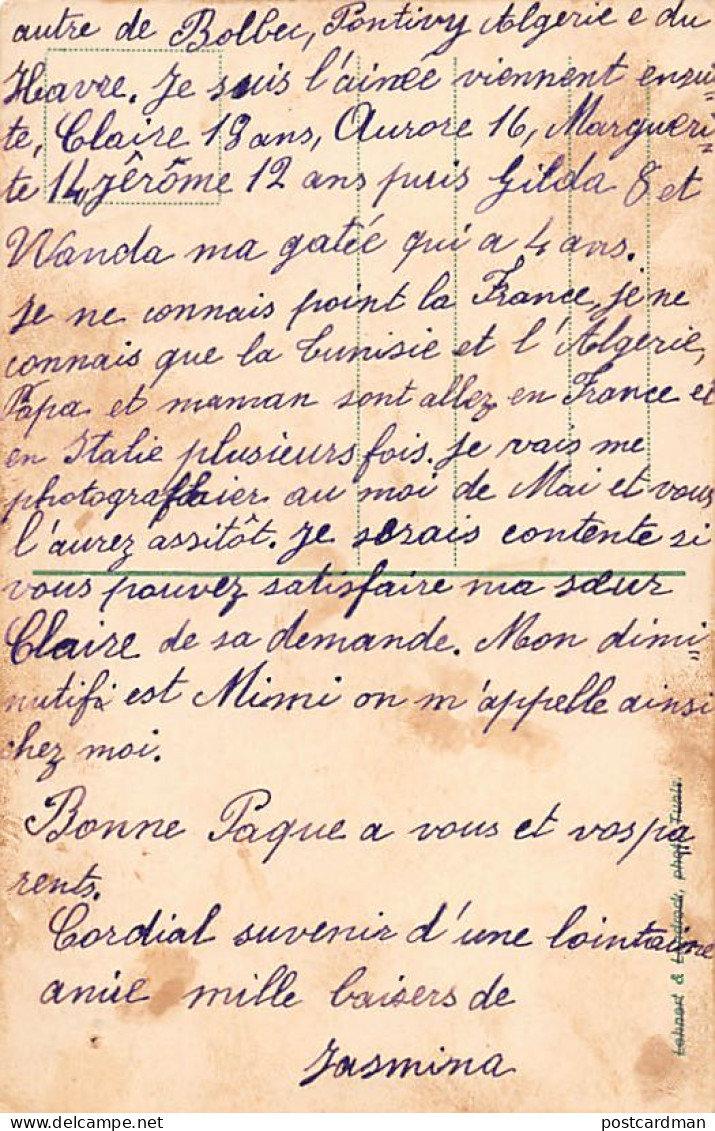 autre de Bolbec, Pontivy Algerie e du
Havre. Je suis l'ainée viennent ensui-
te, Claire 19 ans, Aurore 16, Margueri-
te 14, Jérôme 12 ans puis Gilda 8 et
Wanda ma gatée qui a 4 ans.
Je ne connais point la France, je ne
connais que la Tunisie et l'Algerie,
Papa et maman sont allez en France et
en Italie plusieurs fois. Je vais me
photographier au moi de Mai et vous
l'aurez assitôt. Je serais contente si
vous pouvez satisfaire ma sœur
Claire de sa demande. Mon dimi-
nutifi est Mimi on m'appelle ainsi
chez moi.
Bonne Paque a vous et vos pa
rents.
Cordial suvenir d'une lointaine
amie mille baisers de
Jasmina
Lehnert & Landrock, phot. Tunis.
postcardman